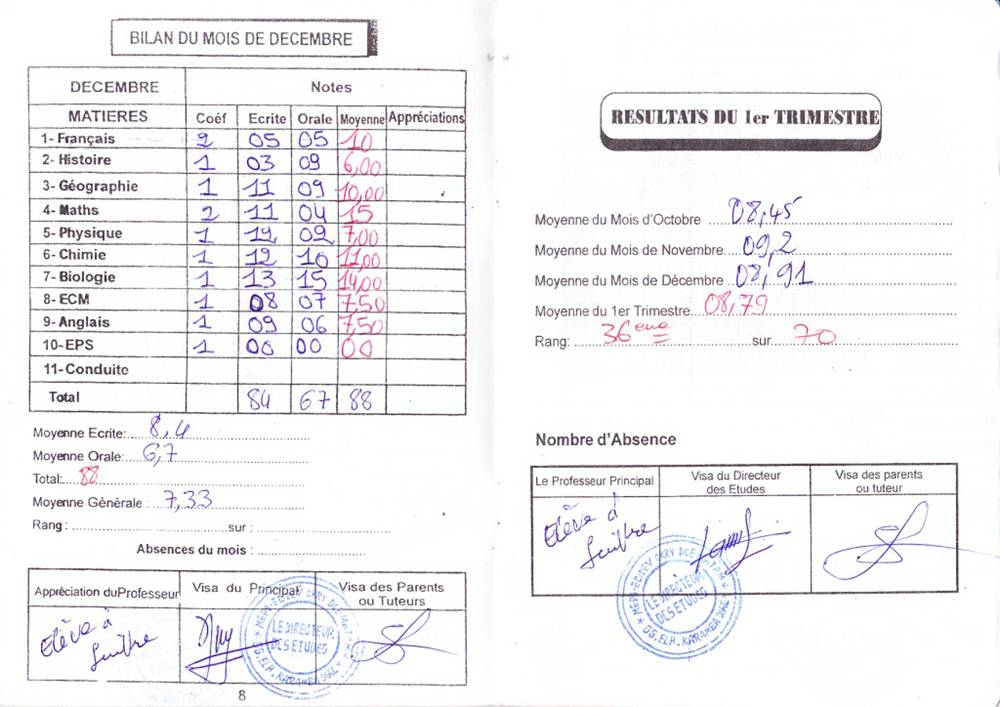 BILAN DU MOIS DE DECEMBRE
DECEMBRE Notes
MATIERES Coéf Ecrite Orale Moyenne Appréciations
1- Français 2 05 05 10
2- Histoire 1 03 09 6,00
3- Géographie 1 11 09 10,00
4- Maths 2 11 04 15
5- Physique 1 12 02 7,00
6- Chimie 1 12 10 11,00
7- Biologie 1 13 15 14,00
8- ECM 1 08 07 7,50
9- Anglais 1 09 06 7,50
10- EPS 1 00 00 00
11- Conduite
Total 84 67 88
Moyenne Ecrite: 8,4
Moyenne Orale: 6,7
Total: 88
Moyenne Générale : 7,33
Rang : sur :
Absences du mois :
Appréciation du Professeur Visa du Principal Visa des Parents ou Tuteurs
Elève à suivre
LE DIRECTEUR
DES ETUDES
8
RESULTATS DU 1er TRIMESTRE
Moyenne du Mois d'Octobre 08,45
Moyenne du Mois de Novembre 09,2
Moyenne du Mois de Décembre 08,91
Moyenne du 1er Trimestre 08,79
Rang: 36eme sur 70
Nombre d'Absence
Le Professeur Principal Visa du Directeur des Etudes Visa des parents ou tuteur
Elève à suivre
LE DIRECTEUR
DES ETUDES